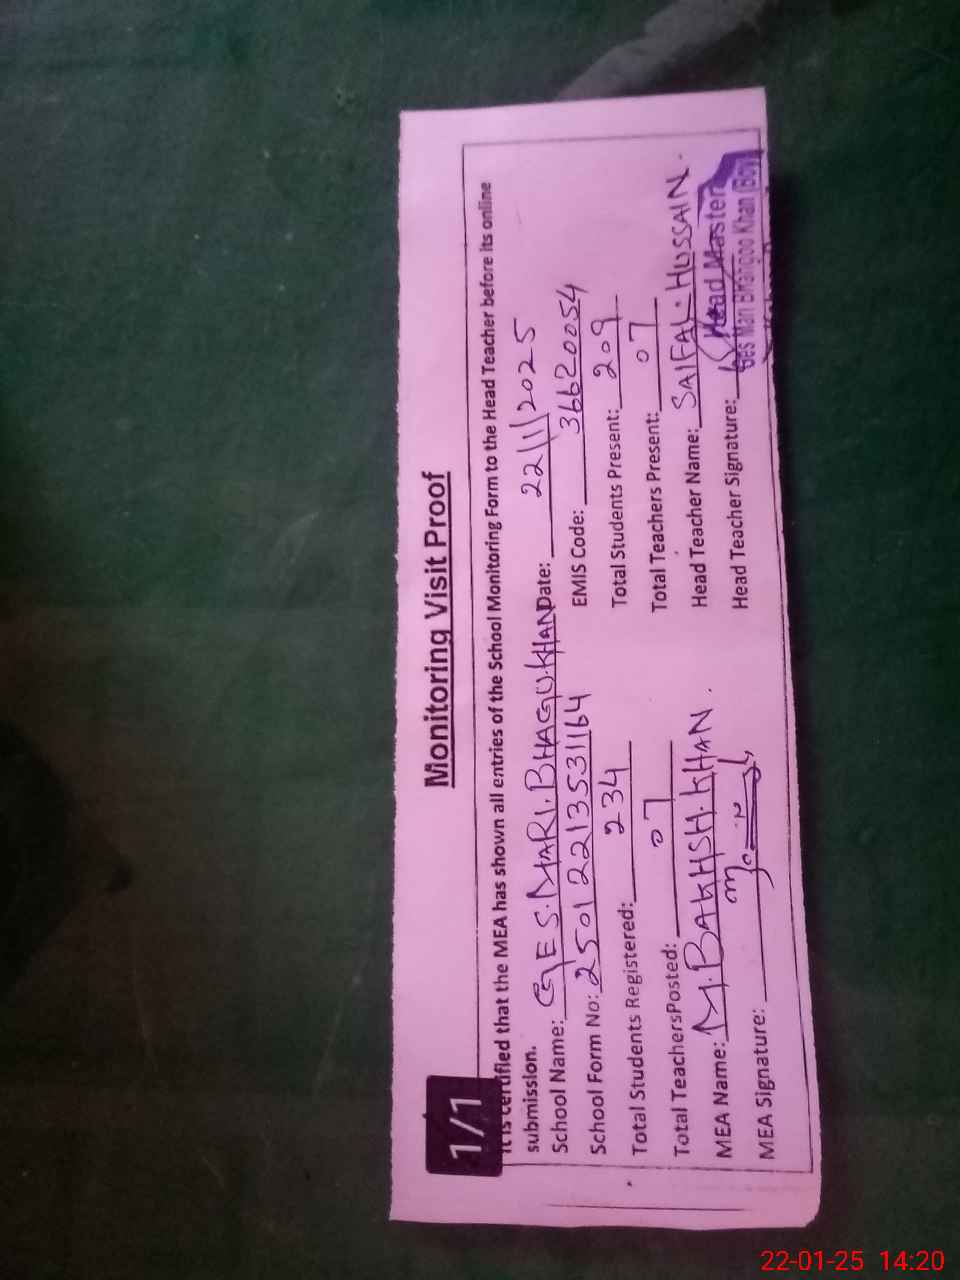 1/1
Monitoring Visit Proof
It is certified that the MEA has shown all entries of the School Monitoring Form to the Head Teacher before its online
submission.
School Name: GES.MARI.BHAGU.KHAN Date: 22/1/2025
School Form No: 2501221353 1164 EMIS Code: 36620054
Total Students Registered: 234 Total Students Present: 209
Total TeachersPosted: 07 Total Teachers Present: 07
MEA Name: M.BAKHSH.KHAN. Head Teacher Name: SAIFAL.HUSSAIN.
MEA Signature: Head Teacher Signature:
Head Master
Ges Mari Bhangoo Khan (Boy)
22-01-25 14:20